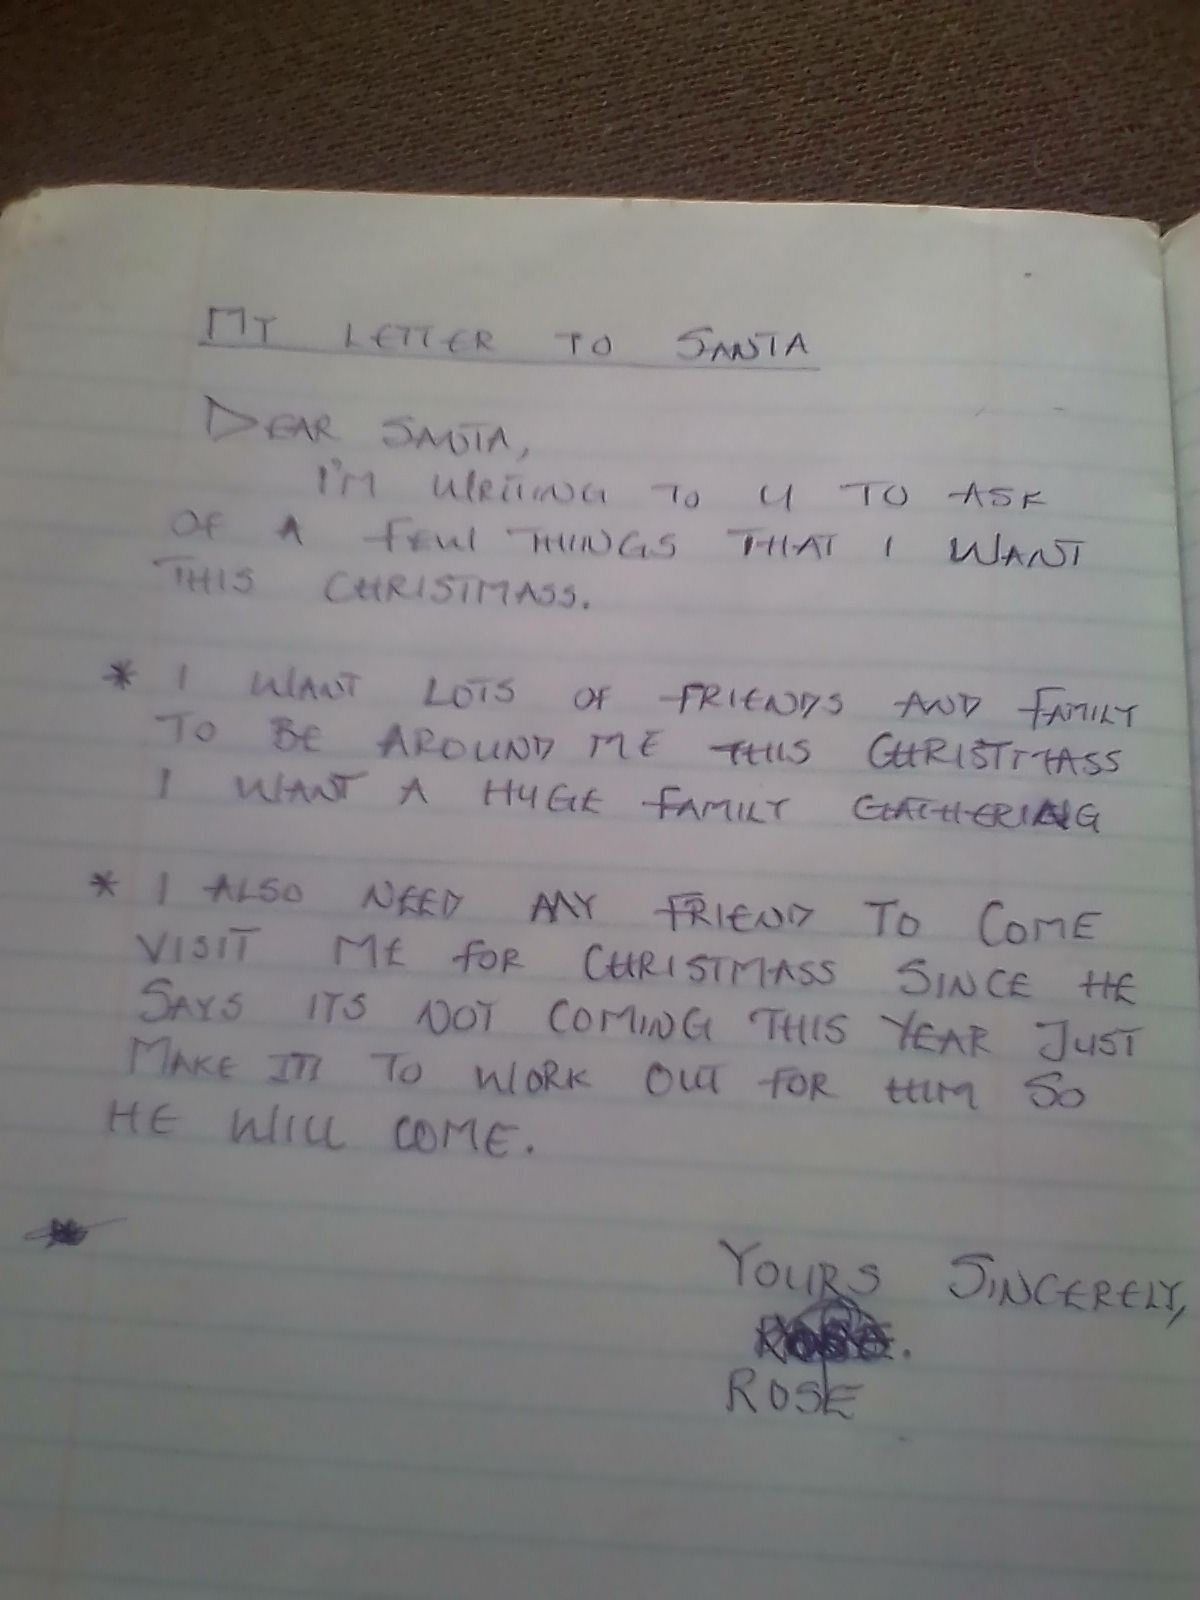 MY LETTER TO SANTA
DEAR SANTA,
I'M WRITING TO U TO ASK
OF A FEW THINGS THAT I WANT
THIS CHRISTMASS.
* I WANT LOTS OF FRIENDS AND FAMILY
TO BE AROUND ME THIS CHRISTMASS
I WANT A HUGE FAMILY GATHERING
* I ALSO NEED MY FRIEND TO COME
VISIT ME FOR CHRISTMASS SINCE HE
SAYS ITS NOT COMING THIS YEAR JUST
MAKE TO WORK OUT FOR HIM SO
HE WILL COME.
YOURS SINCERELY,
ROSE